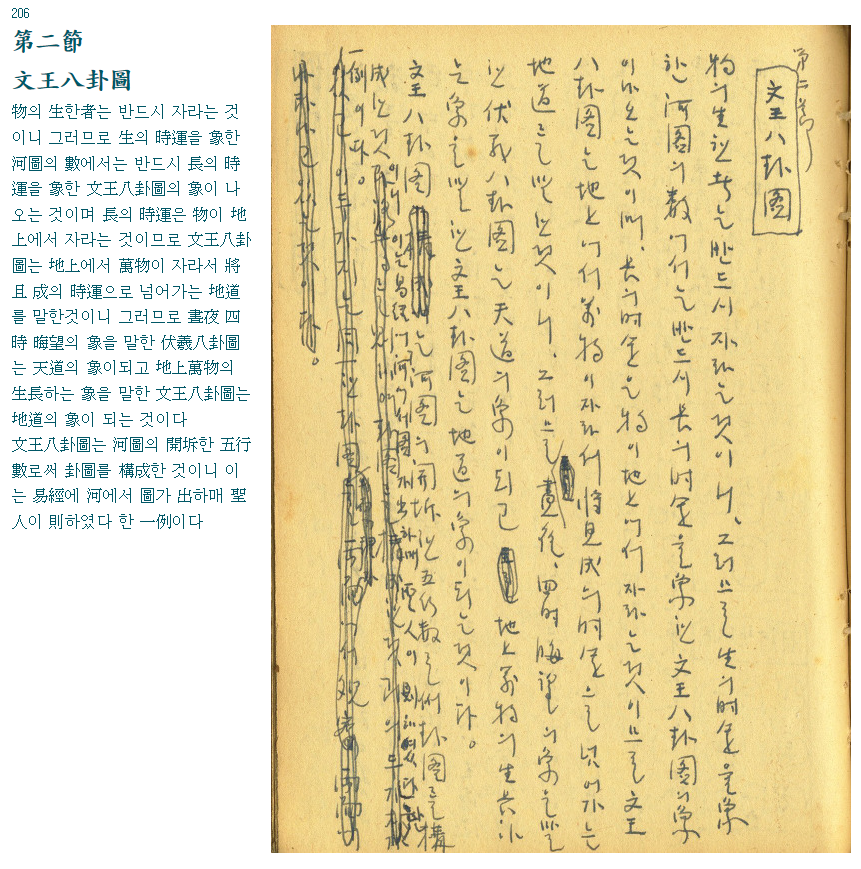 206
第二節
文王八卦圖
物의 生한者는 반드시 자라는 것
이니 그러므로 生의 時運을 象한
河圖의 數에서는 반드시 長의 時
運을 象한 文王八卦圖의 象이 나
오는 것이며 長의 時運은 物이 地
上에서 자라는 것이므로 文王八卦
圖는 地上에서 萬物이 자라서 將
且 成의 時運으로 넘어가는 地道
를 말한것이니 그러므로 晝夜 四
時 晦望의 象을 말한 伏羲八卦圖
는 天道의 象이되고 地上萬物의
生長하는 象을 말한 文王八卦圖는
地道의 象이 되는 것이다
文王八卦圖는 河圖의 開坼한 五行
數로써 卦圖를 構成한 것이니 이
는 易經에 河에서 圖가 出하매 聖
人이 則하였다 한 一例이다
第二節
文王八卦圖
物의 生한 者는 반드시 자라는 것이니, 그러므로 生의 時運을 象
한 河圖의 數에서는 반드시 長의 時運을 象한 文王八卦圖의 象
이 나오는 것이며, 長의 時運은 物이 地上에서 자라는 것이므로 文王
八卦圖는 地上에서 萬物이 자라서 將且 成의 時運으로 넘어가는
地道를 말한 것이니, 그러므로 晝夜, 四時 晦望의 象을 말
한 伏羲八卦圖는 天道의 象이 되고 地上萬物의 生長하
는 象을 말한 文王八卦圖는 地道의 象이 되는 것이다。
文王八卦圖는 河圖의 開坼한 五行數로써 卦圖를 構
成한 것이니 이는 易經에 河에서 圖가 出하매 聖人이 則하였다 한
一例이다。